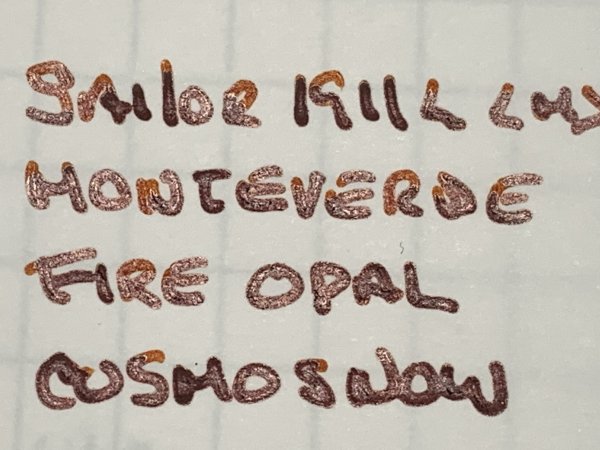 Sailor 1911 L
MONTEVERDE
FIRE OPAL
COSMO SNOW